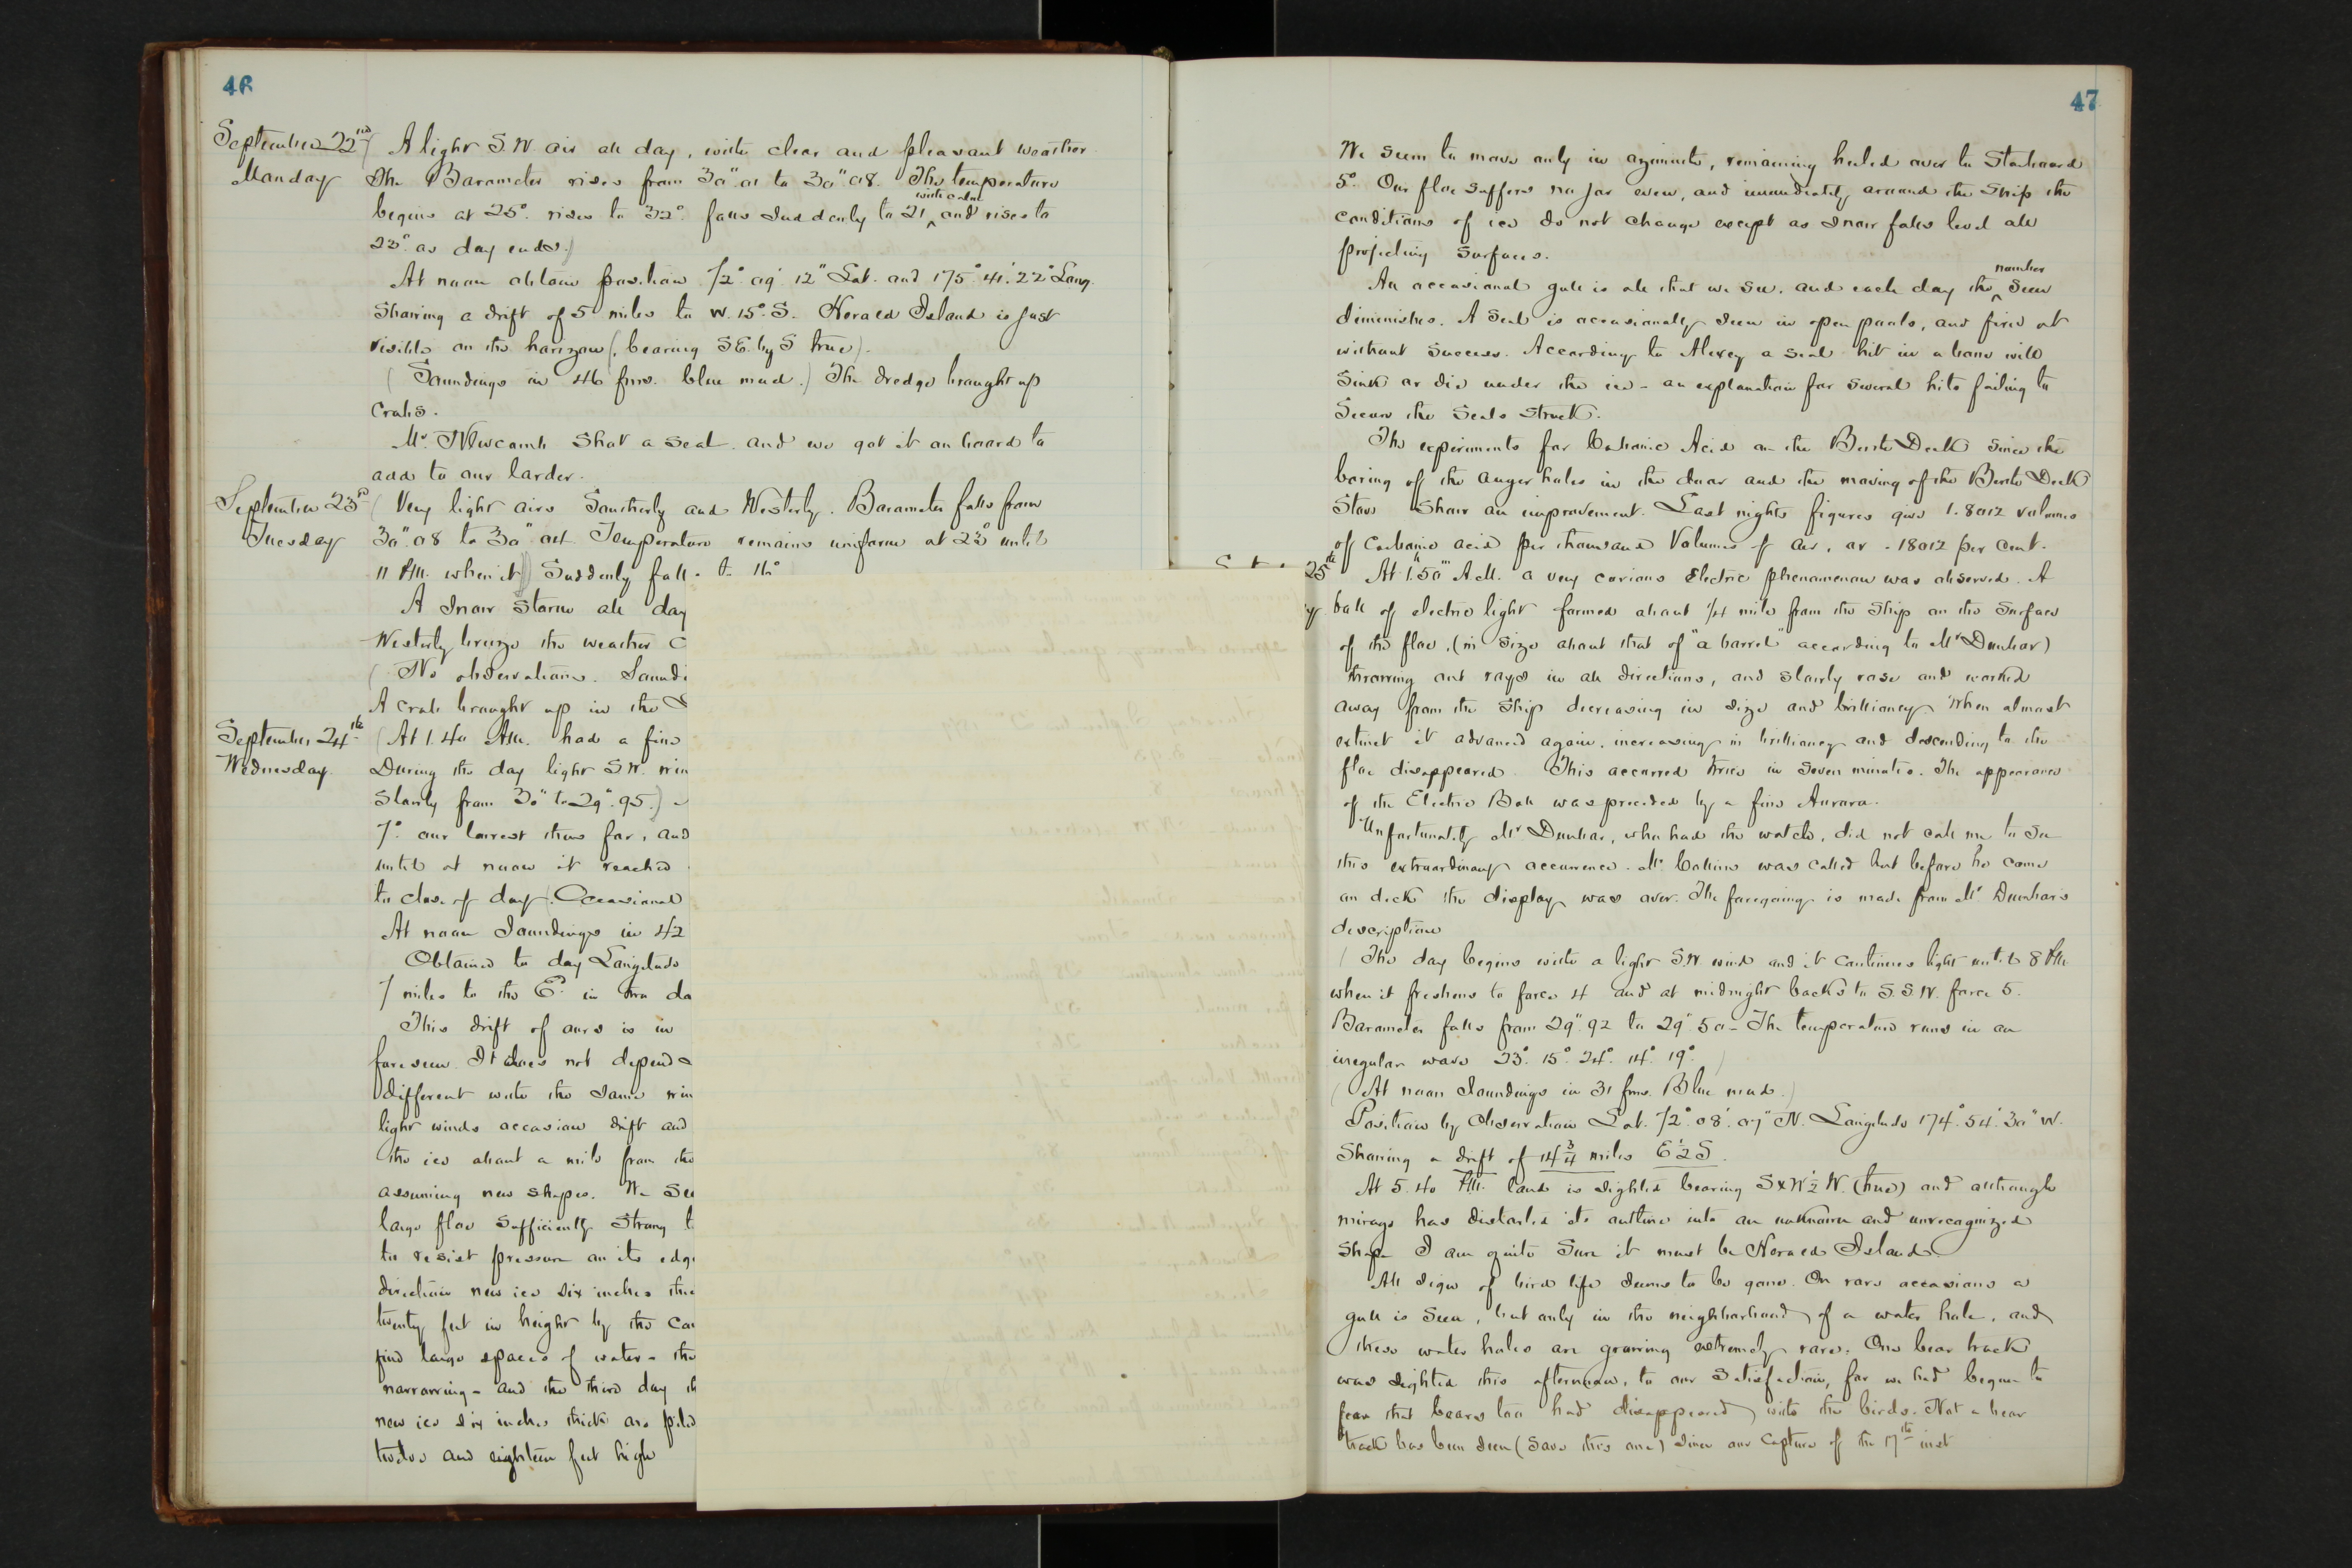 46
September 22nd ( A light S.W. air all day, with clear and pleasant weather
Monday The Barometer rises from 30".01 to 30".08. The temperature
with calm
begins at 25° rises to 32° falls suddenly to 21 ^ and rises to
23° as day ends.)
At noon obtain position 72° 09' 12" Lat. and 175° 41' 22" Long.
Showing a drift of 5 miles to W. 15° S. Herald Island is just
visible on the horizon (bearing SE. by S true).
( Soundings in 46 fms. blue mud.) The dredge brought up
crabs.
Mr. Newcomb shot a seal. and we got it on board to
add to our larder.
September 23d ( Very light airs Southerly and Westerly. Barometer falls from
Tuesday 30".08 to 30".04 Temperature remains uniform at 23° until
11 PM. when it) Suddenly
A snow storm all day
Westerly breeze the weather
( No observations.
A crab brought up in the
September 24th ( At 1.40 AM. had a fine
Wednesday. During the day light S.W.
Slowly from 30" to 29".95.)
7° our lowest thus far, and
until at noon it reached
to close of day. Occasional
At noon Soundings in 42
Obtained to day Longitude
7 miles to the Ed. in two
This drift of ours is in
foreseen. It does not depend
different with the same
light winds occasion drift and
the ice about a mile from the
assuming new shapes. We
large floe sufficiently strong
to resist pressure on its
direction new ice six inches
twenty feet in height by the
find large spaces of water - the
narrowing - and the third day
new ice six inches thick are
twelve and eighteen feet high
47
We seem to move only in azimuth, remaining heeled over to Starboard
5°. Our floe suffers no jar even, and immediately around the Ship the
conditions of ice do not change except as snow falls level all
projecting surfaces.
number
An occasional gull is all that we see, and each day the ^ seen
diminishes. A Seal is occasionally seen in open pools, and fired at
without success. According to Alexey a seal hit in a bone will
Sink or die under the ice - an explanation for several hits failing to
Secure the Seals struck.
The experiments for Carbonic Acid on the Berth Deck since the
boring of the auger holes in the door and the moving of the Berth Deck
Stove show an improvement. Last nights figures give 1.8012 volumes
of carbonic acid per thousand Volumes of air, or .18012 per cent.
25th At 1h 50m A.M. a very curious Electric phenomenon was observed. A
ball of electric light formed about 1/4 mile from the Ship on the surface
of the floe, (in size about that of "a barrel" according to Mr Dunbar)
throwing out rays in all directions, and slowly rose and worked
away from the Ship decreasing in size and brilliancy. When almost
extinct it advanced again, increasing in brilliancy and descending to the
floe disappeared. This occurred thrice in seven minutes. The appearance
of the Electric Ball was preceded by a fine Aurora.
Unfortunately Mr Dunbar, who had the watch, did not call me to see
this extraordinary occurrence. Mr Collins was called but before he came
on deck the display was over. The foregoing is made from Mr Dunbar's
description
( The day begins with a light S.W. wind and it continues light until 8 PM.
when it freshens to force 4 and at midnight backs to S.S.W. force 5.
Barometer falls from 29".92 to 29".50 - The temperature runs in an
irregular wave 23°. 15°. 24°. 14°. 19°. )
( At noon Soundings in 31 fms. Blue mud.)
Position by observation Lat. 72° 08' 07" N. Longitude 174° 54' 30" W.
Showing a drift of 14 3/4 miles E 1/2 S.
At 5.40 PM. land is sighted bearing SxW 1/2 W. (true) and although
mirage has distorted its outline into an unknown and unrecognized
shape I am quite sure it must be Herald Island.
All sign of bird life seems to be gone. On rare occasions a
gull is seen, but only in the neighborhood of a water hole, and
these water holes are growing extremely rare. One bear track
was sighted this afternoon, to our satisfaction, for we had begun to
fear that bears too had disappeared with the birds. Not a bear
track has been seen (save this one) since our capture of the 17th inst